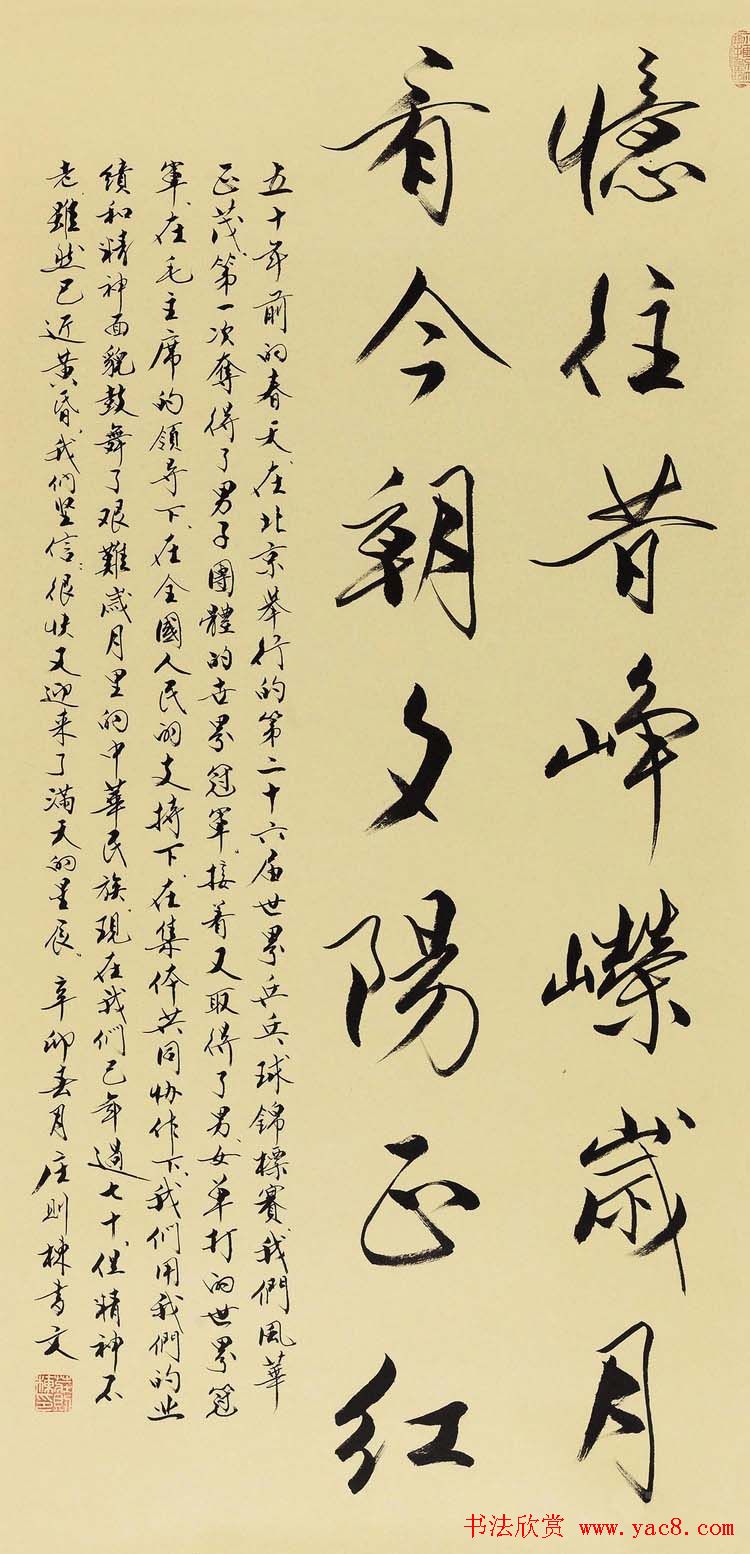 憶往昔崢嶸歲月
看今朝夕陽正紅
五十年前的春天、在北京舉行的第二十六届世界乒乓球錦標賽、我們風華
正茂、第一次奪得了男子團體的世界冠軍、接着又取得了男、女單打的世界冠
軍、在毛主席的領导下、在全國人民的支持下、在集体共同协作下、我們用我們的业
績和精神面貌鼓舞了艰難歲月里的中華民族、現在我們已年過七十、但精神不
老、雖然已近黄昏、我们坚信：很快又迎来了满天的星辰、辛卯春月庄则棟書文
莊則棟印
书法欣赏 www.yac8.com